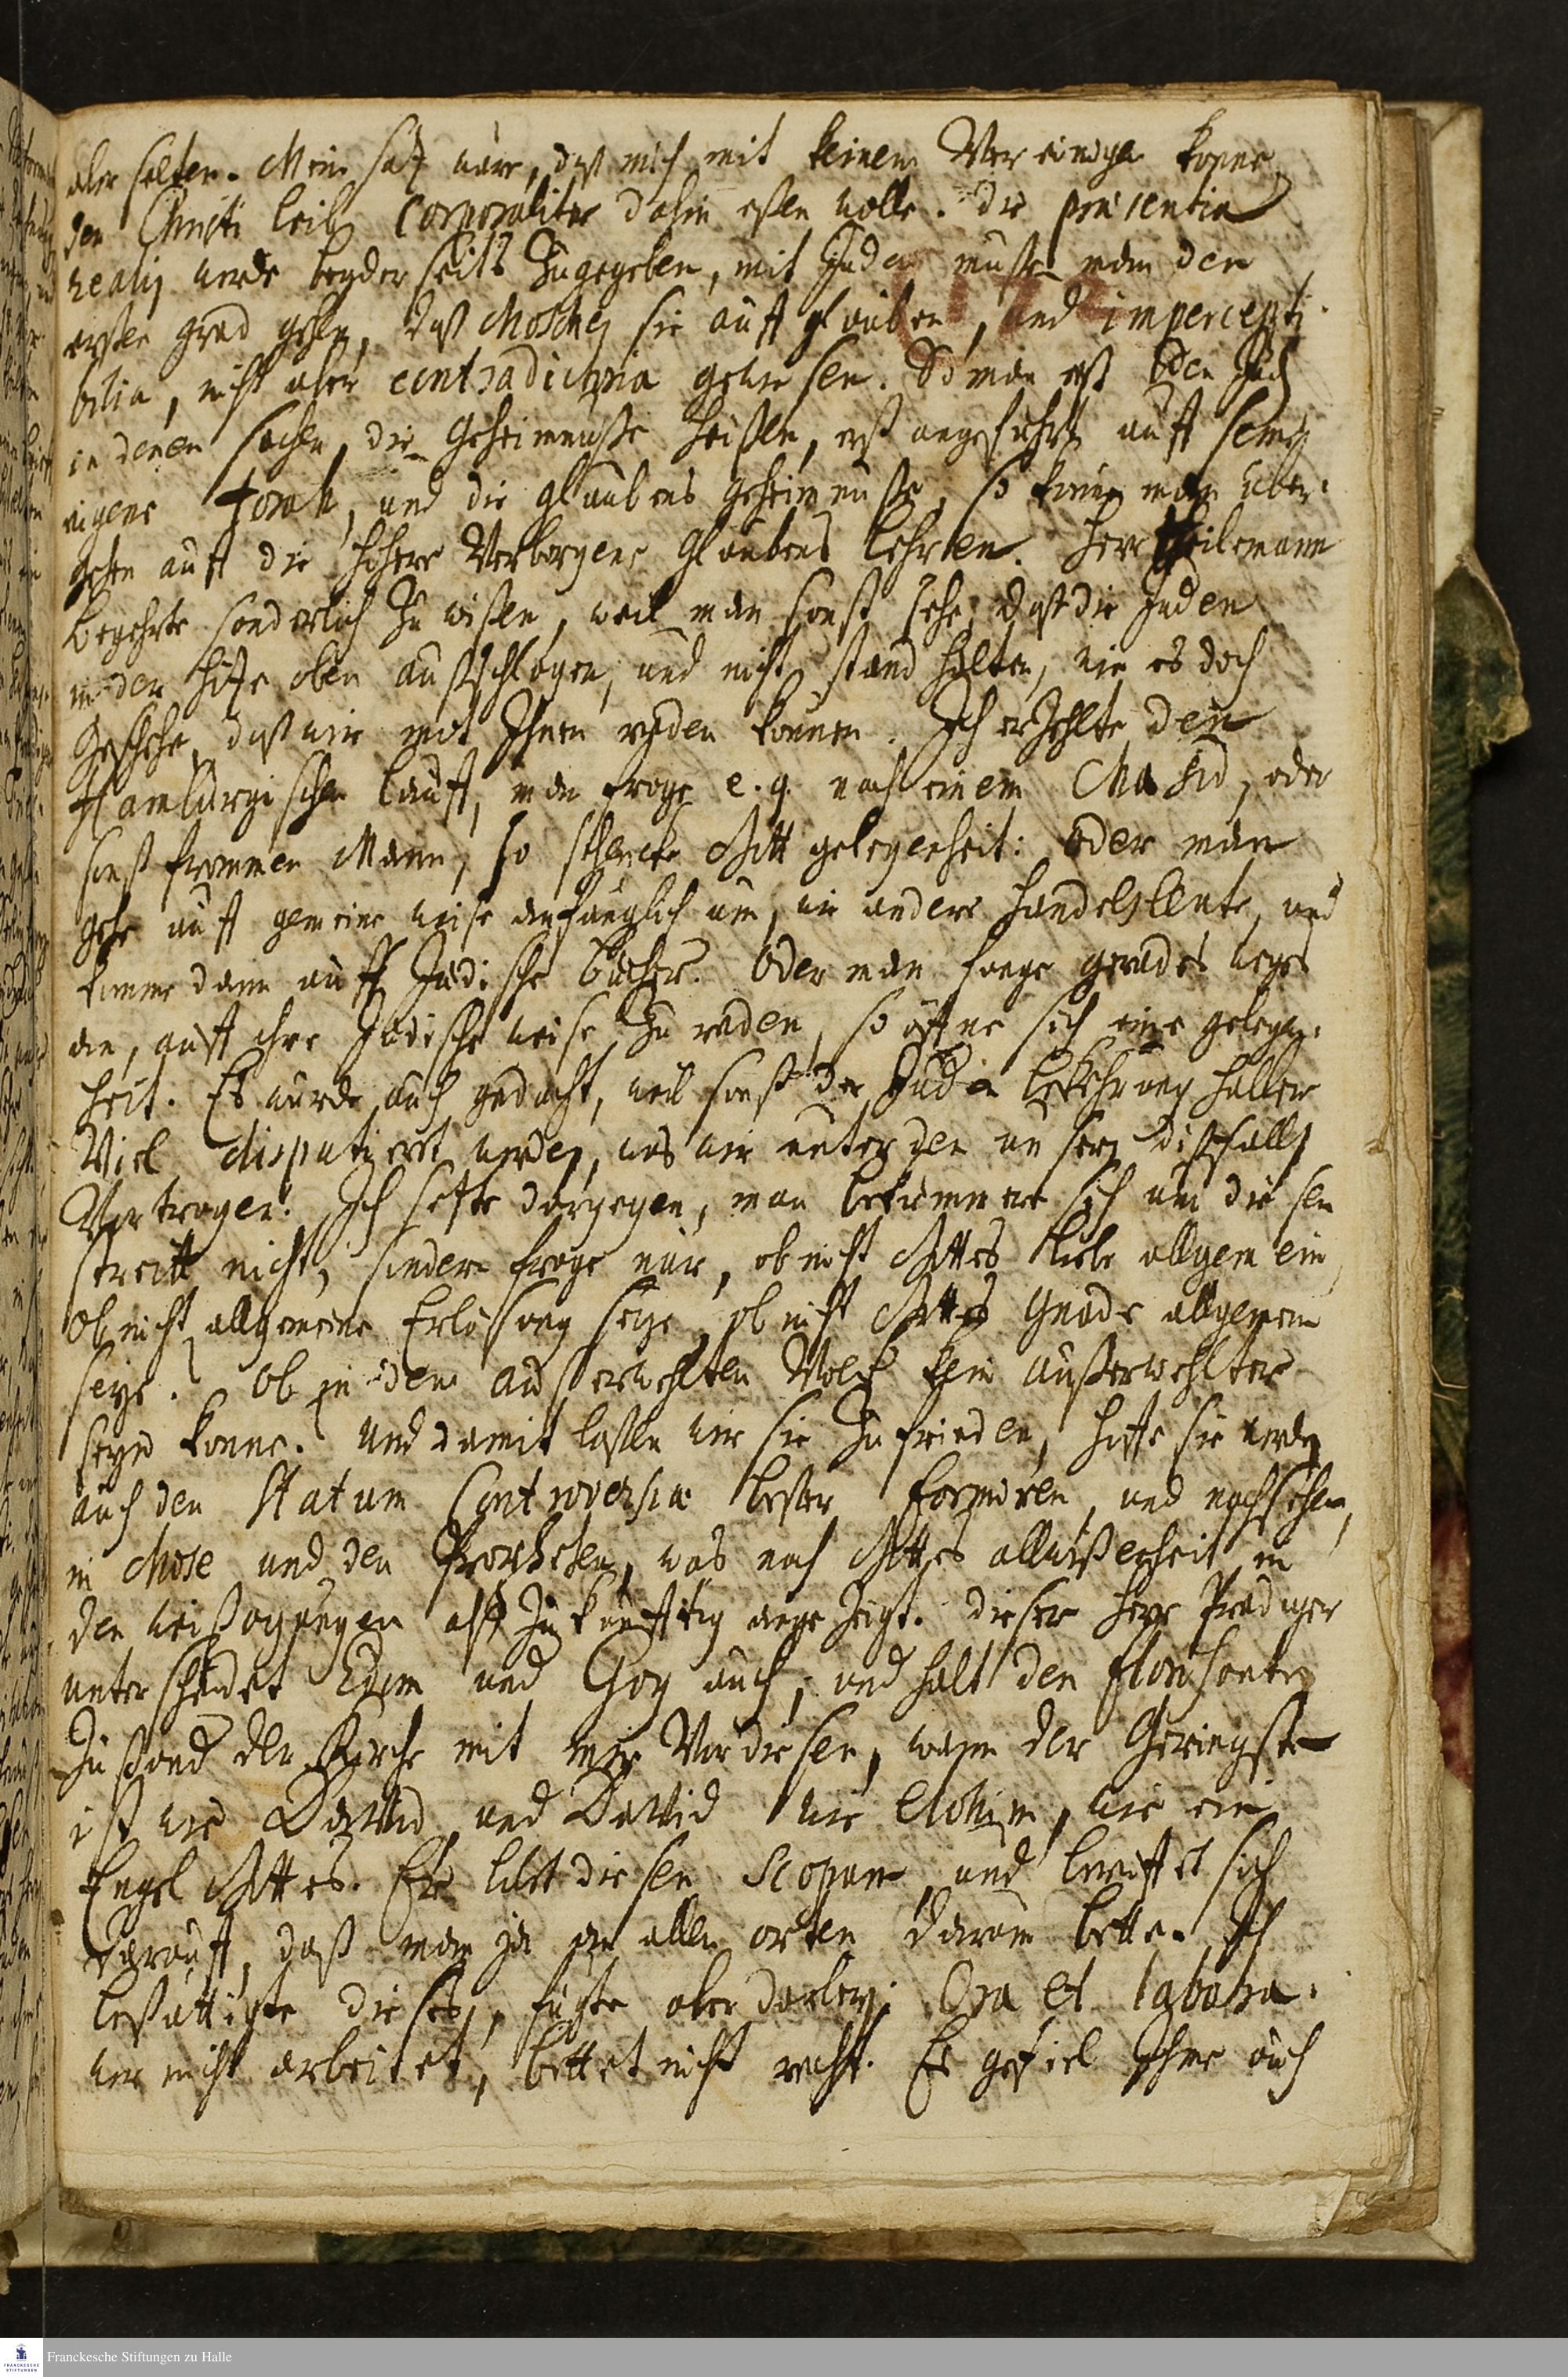 aber selten. Mein satz ware, daß mich mit keinem Vereinigen konne
der Christi leib corporaliter dahin eßen wolle. die præsentia
realis werde beyderseits zugegeben, mit Juden mußte man den
ersten grad gehen, daß Moschen sie auff glauben, und impercepti-
bilia, nicht aber contradictoria gewiesen. So man erst den Jud
in denen sachen, die Geheimnuße heißen, erst angeführt auff seine
eigene Torah, und die glaubens geheimnuße, so könne man uber-
gehen auff die höhere Verborgene Glaubens Lehren. Herr Heilemann
begehrte sonderlich zu wißen, weil man sonst sehe, daß die Juden
in der hitze oben außschlagen, und nicht stand halten, wie es doch
Geschehe, daß wir mit Ihnen reden können. Ich erzehlte den
Hamburgischen lauff, man frage e. g. nach einem Chasid, oder
sonst frommen Mann, so schencke Gott gelegenheit: oder man
gehe auff gemeine weise anfänglich um, wie andere handelsleute, und
komme dann auff Jüdische bücher. Oder man fange grades weges
an, auff ihre Jüdische weise zu reden, so öffne sich eine gelegen-
heit. Es wurde auch gedacht, weil sonst der Juden bekehrung halber
Viel disputiert werde, was wir unter den unsern dißfalls
Vortragen. Ich setzte dargegen, man bekümmere sich um diesen
streitt nicht, sondern frage nur, ob nicht Gottes liebe allgemein
ob nicht allgemeine Erlösung seye, ob nicht Gottes Gnade allgemein
seye. Ob in dem außerwehlten Volck kein außerwehlter
seyn konne. Und damit laßen wir sie zu frieden, hoffe sie werden
auch den Statum Controversiæ beßer formiren, und nachsehen,
in Mose und den Propheten, was nach Gottes allwißenheit in
den weißagungen alß zukünfftig angezeigt. dieser Herr Prediger
unterscheidet Edom und Goy auch, und halt den florisanten
Zustand der Kirche mit mir Vor diesen, wann der Geringste
ist wie David und David wie Elohim, wie ein
Engel Gottes. Er liebt diesen Scopum, und berufft sich
darauff, daß man ja an allen orten darum bette. Ich
bestättigte dieses, fügte aber darbey: Ora et labora.
wer nicht arbeitet, bettet nicht recht. Es gefiel Ihme auch
Franckesche Stiftungen zu Halle